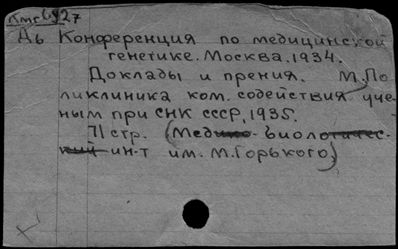 Дь Конференция по медицинской
генетике. Москва, 1934.
Доклады и прения. М, По
ликлиника ком. содействия уче
ным при СНК СССР, 1935.
71 стр. (Медико-биологичес-
кий ин-т им. М. Горького)